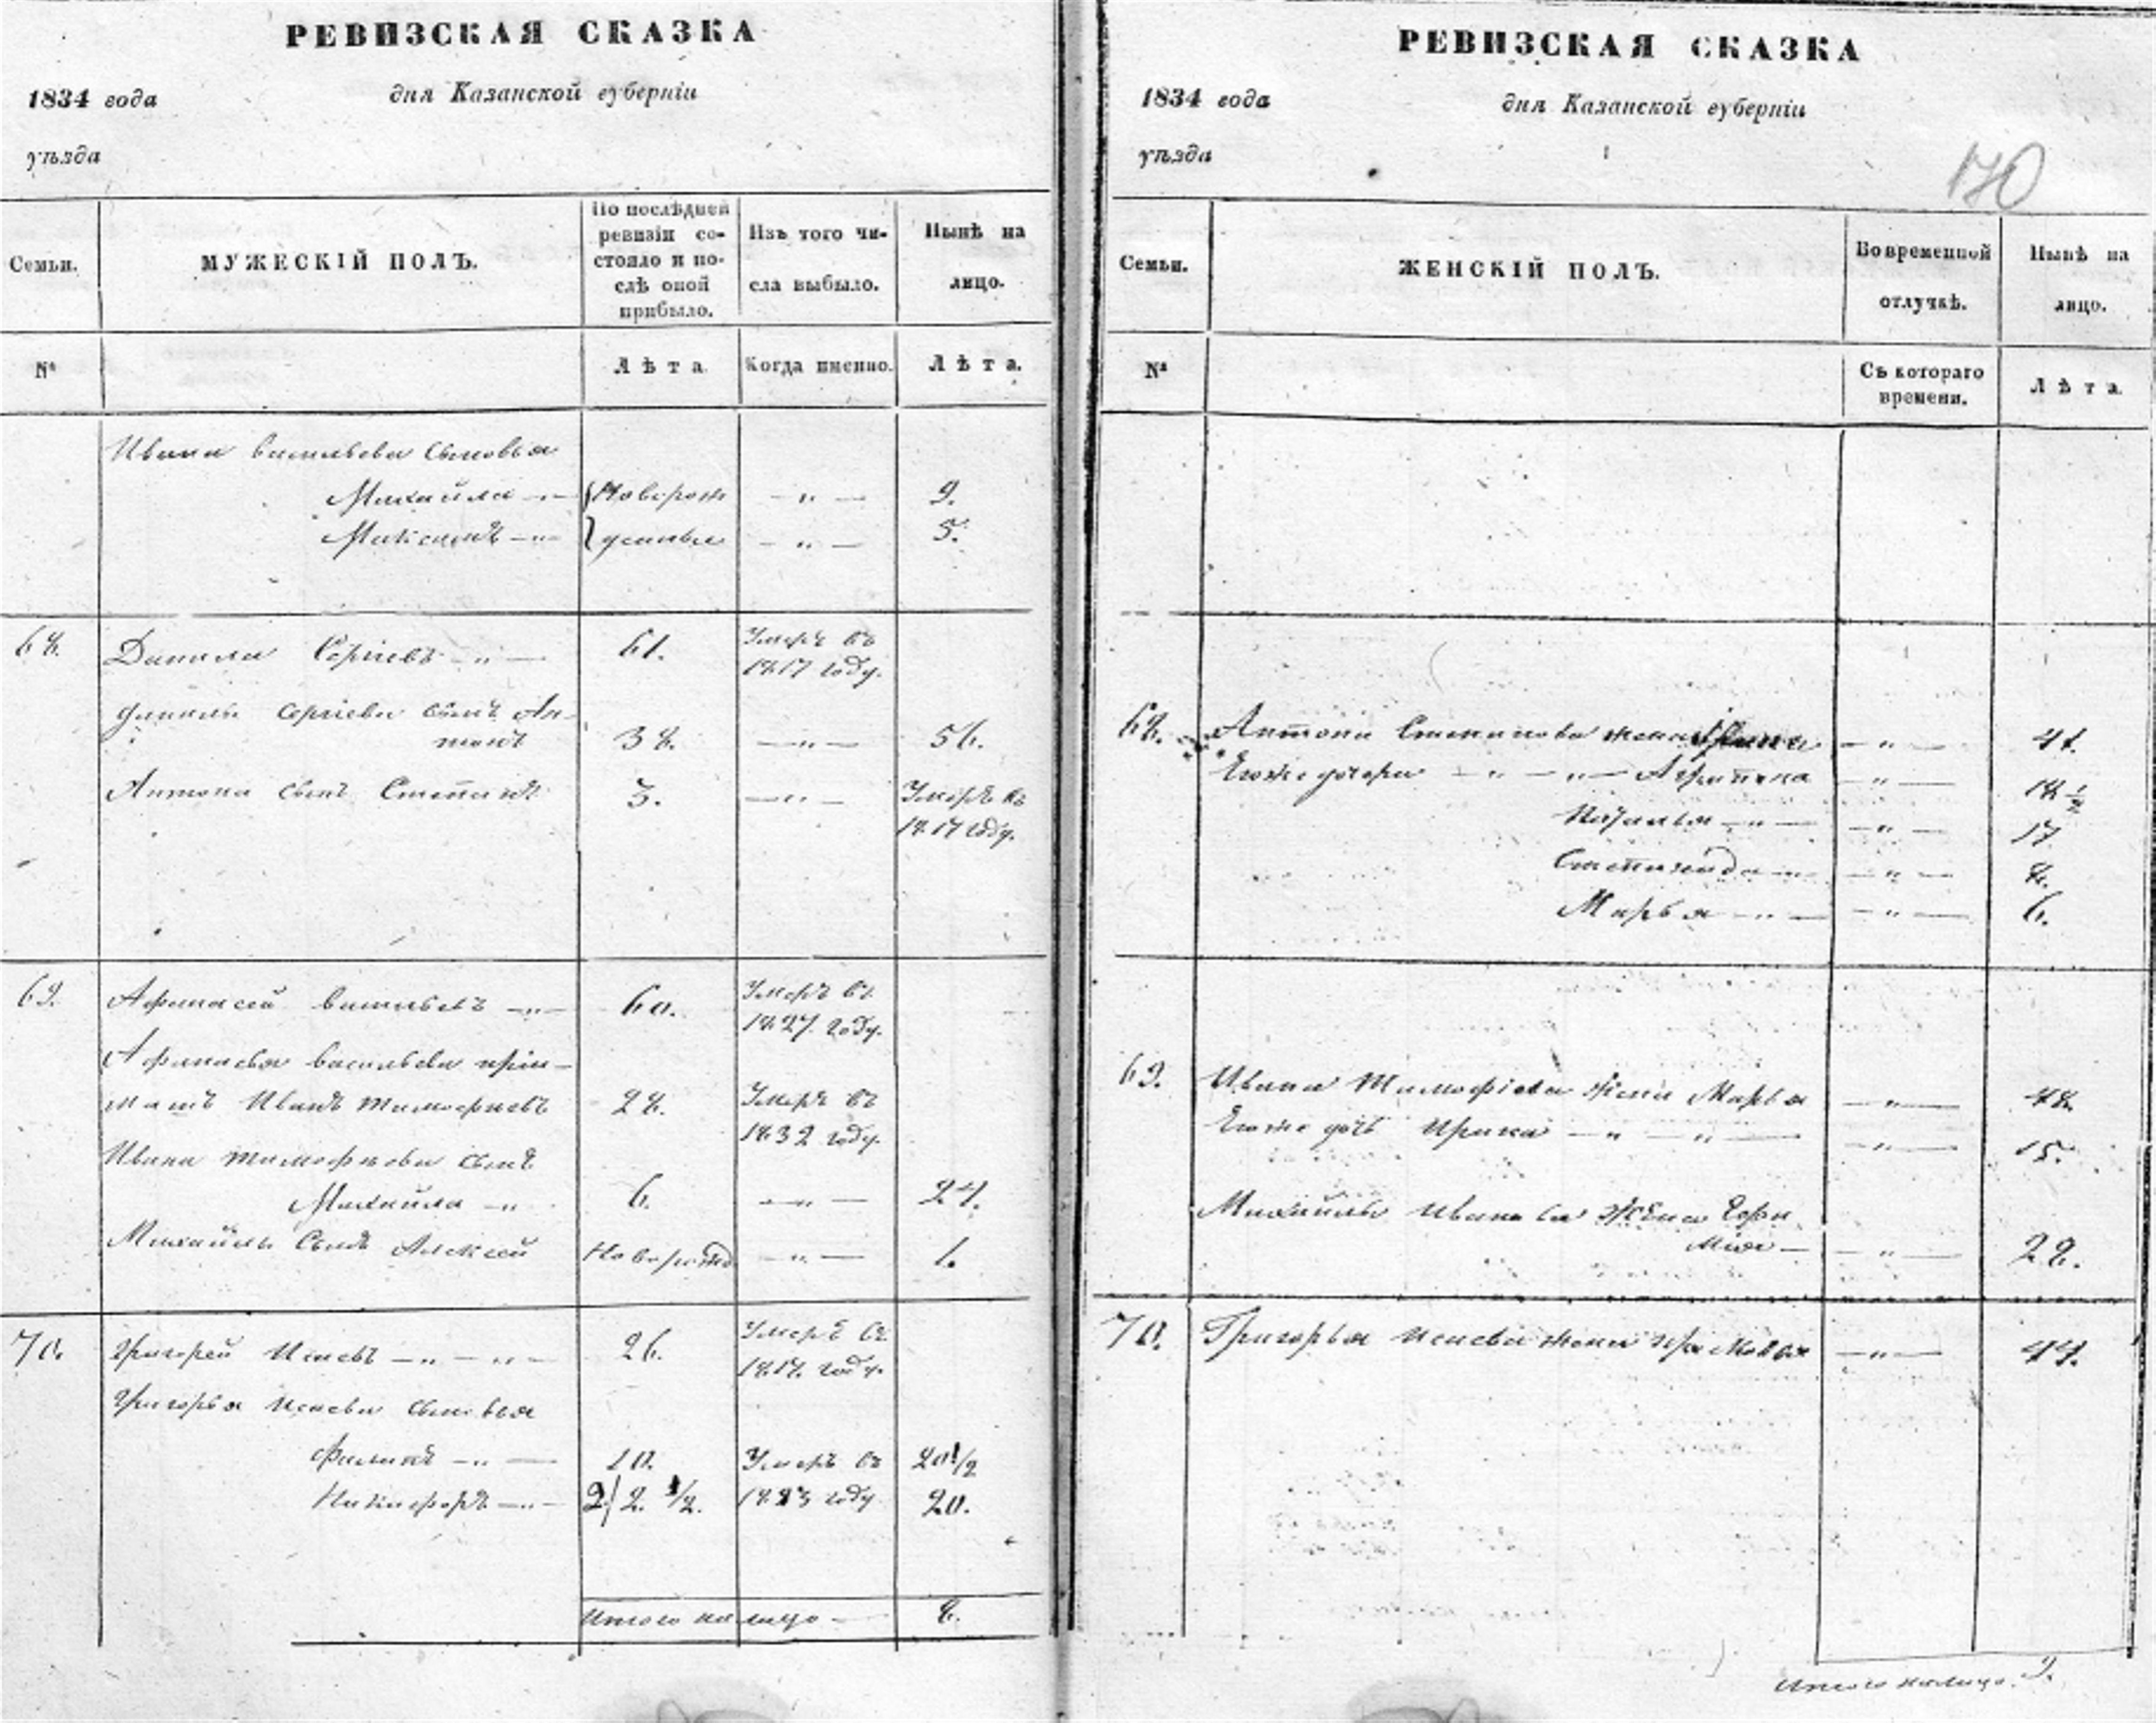 РЕВИЗСКАЯ СКАЗКА
1834 года дня Казанской губерніи
уѣзда
Семьи.
МУЖЕСКІЙ ПОЛЪ.
По послѣдней
ревизіи со-
стояло и по-
слѣ оной
прибыло.
Изъ того чи-
сла выбыло.
Нынѣ на
лицо.
№
Лѣта
Когда именно.
Лѣта.
Ивана Васильева сыновья
Михайла — " — Новорож — " — 9.
Максимъ — " — — " — 5.
68. Данила Сергіевъ — " — 61. Умеръ въ
1817 году.
Данилы Сергіева сынъ Ан-
тонъ 38. — " — 56.
Антона сынъ Степанъ 3. — " — Умеръ въ
1817 году.
69. Афанасей Васильевъ — " — 60. Умеръ въ
1827 году.
Афанасья Васильева
Иванъ Тимофиевъ 28. Умеръ въ
1832 году.
Ивана Тимофиева сынъ
Михайла — " 6. — " — 24.
Михайлы сынъ Алексей Новорожд — " — 1.
70. Григорей Исаевъ — " — " — 26. Умеръ въ
году.
Григорья Исаева сыновья
Филипъ — " — 10. Умеръ въ 20 1/2
Никифоръ — " — 2 1/2. году 20.
Итого на лицо — 8.
РЕВИЗСКАЯ СКАЗКА
1834 года дня Казанской губерніи
уѣзда
170
Семьи.
ЖЕНСКІЙ ПОЛЪ.
Во временной
отлучкѣ.
Нынѣ на
лицо.
№
Съ котораго
времени.
Лѣта
68. Антона Степанова жена — " —
Егоже дочери — " — " — — " — 18 1/2
Наталья — " — — " — 17
Степанида — " — — " — 8.
Марья — " — — " — 6.
69. Ивана Тимофіева жена Марья — " — 48.
Егоже дочь Ирина — " — " — — " — 15.
Михайлы Иванова жена
— " — 22.
70. Григорья Исаева жена Прасковья — " — 44.
Итого налицо. 9.